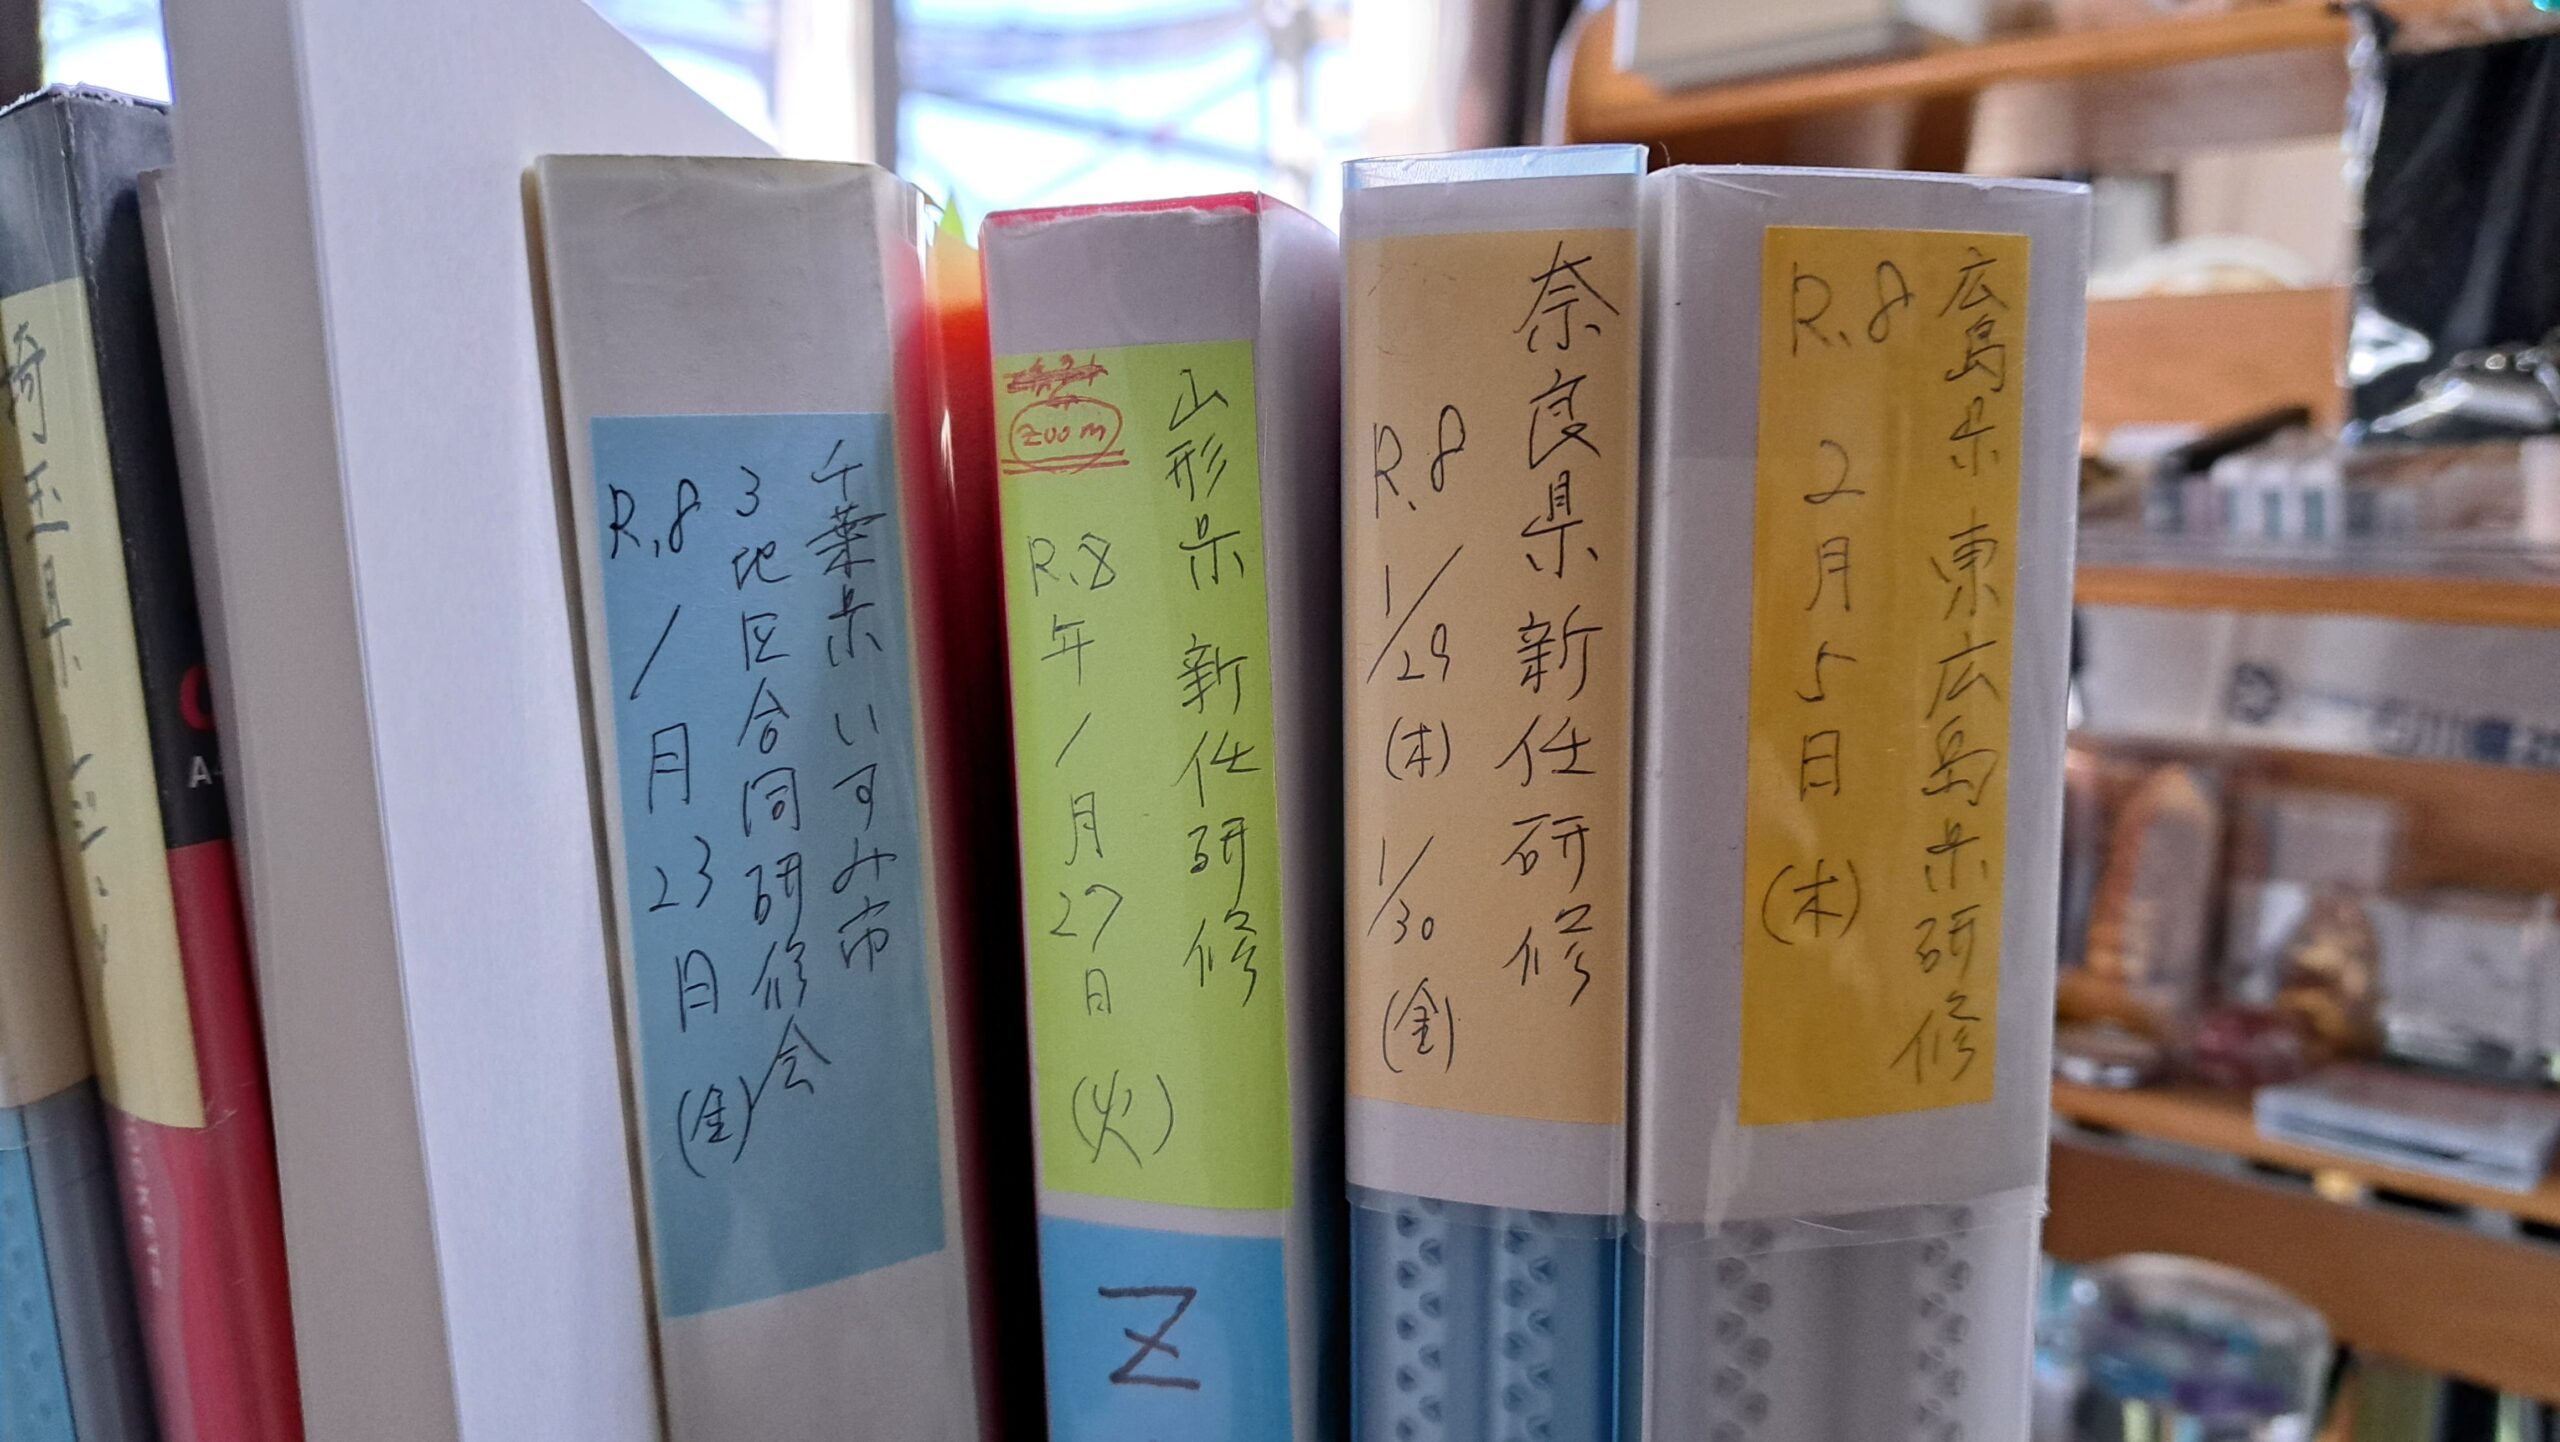 埼玉県
千葉県いすみ市
3地区合同研修会
R.8 1月23日(金)
zoom
山形県 新任研修
R.8年1月27日(火)
Z
奈良県新任研修
R.8 1/29(木) 1/30(金)
広島県 東広島県研修
R.8 2月5日(木)